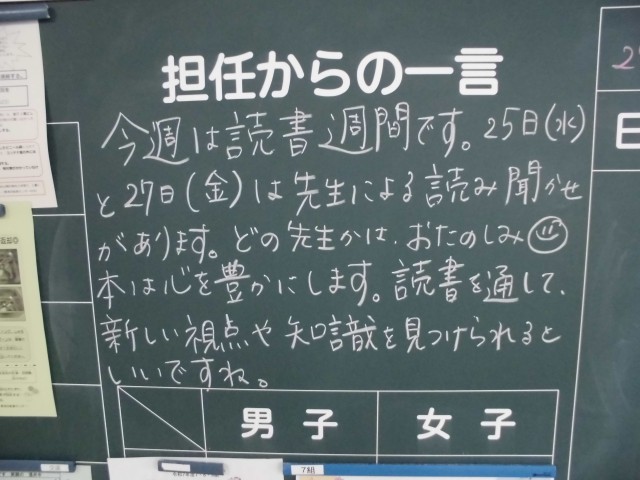 担任からの一言
今週は読書週間です。25日(水)
と27日(金)は先生による読み聞かせ
があります。どの先生かは、おたのしみ
本は心を豊かにします。読書を通して、
新しい視点や知識を見つけられると
いいですね。
男子
女子
7組
日